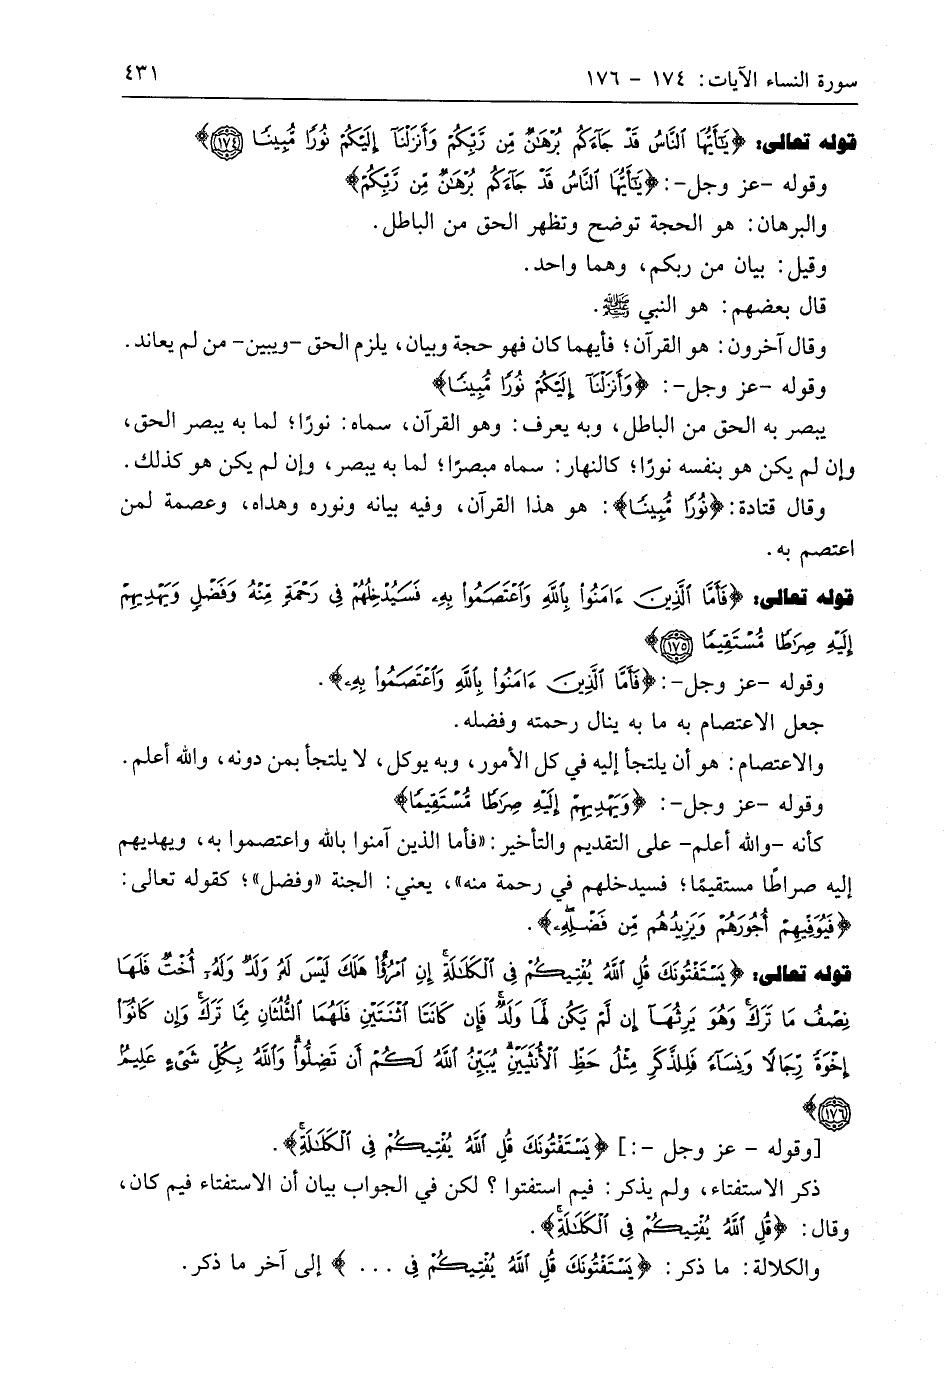 سورة النساء الآيات: ١٧٤ - ١٧٦ ٤٣١
قوله تعالى: ﴿يَٰٓأَيُّهَا ٱلنَّاسُ قَدْ جَآءَكُم بُرْهَٰنٌ مِّن رَّبِّكُمْ وَأَنزَلْنَآ إِلَيْكُمْ نُورًا مُّبِينًا ١٧٤﴾
وقوله -عز وجل-: ﴿يَٰٓأَيُّهَا ٱلنَّاسُ قَدْ جَآءَكُم بُرْهَٰنٌ مِّن رَّبِّكُمْ﴾
والبرهان: هو الحجة توضح وتظهر الحق من الباطل.
وقيل: بيان من ربكم، وهما واحد.
قال بعضهم: هو النبي ﷺ.
وقال آخرون: هو القرآن؛ فأيهما كان فهو حجة وبيان، يلزم الحق -ويبين- من لم يعاند.
وقوله -عز وجل-: ﴿وَأَنزَلْنَآ إِلَيْكُمْ نُورًا مُّبِينًا﴾
يبصر به الحق من الباطل، وبه يعرف: وهو القرآن، سماه: نورًا؛ لما به يبصر الحق،
وإن لم يكن هو بنفسه نورًا؛ كالنهار: سماه مبصرًا؛ لما به يبصر، وإن لم يكن هو كذلك.
وقال قتادة: ﴿نُورًا مُّبِينًا﴾: هو هذا القرآن، وفيه بيانه ونوره وهداه، وعصمة لمن
اعتصم به.
قوله تعالى: ﴿فَأَمَّا ٱلَّذِينَ ءَامَنُوا۟ بِٱللَّهِ وَٱعْتَصَمُوا۟ بِهِۦ فَسَيُدْخِلُهُمْ فِى رَحْمَةٍ مِّنْهُ وَفَضْلٍ وَيَهْدِيهِمْ
إِلَيْهِ صِرَٰطًا مُّسْتَقِيمًا ١٧٥﴾
وقوله -عز وجل-: ﴿فَأَمَّا ٱلَّذِينَ ءَامَنُوا۟ بِٱللَّهِ وَٱعْتَصَمُوا۟ بِهِۦ﴾.
جعل الاعتصام به ما به ينال رحمته وفضله.
والاعتصام: هو أن يلتجأ إليه في كل الأمور، وبه يوكل، لا يلتجأ بمن دونه، والله أعلم.
وقوله -عز وجل-: ﴿وَيَهْدِيهِمْ إِلَيْهِ صِرَٰطًا مُّسْتَقِيمًا﴾
كأنه -والله أعلم- على التقديم والتأخير: «فأما الذين آمنوا بالله واعتصموا به، ويهديهم
إليه صراطًا مستقيمًا؛ فسيدخلهم في رحمة منه»، يعني: الجنة «وفضل»؛ كقوله تعالى:
﴿فَيُوَفِّيهِمْ أُجُورَهُمْ وَيَزِيدُهُم مِّن فَضْلِهِۦ﴾.
قوله تعالى: ﴿يَسْتَفْتُونَكَ قُلِ ٱللَّهُ يُفْتِيكُمْ فِى ٱلْكَلَٰلَةِ ۚ إِنِ ٱمْرُؤٌا۟ هَلَكَ لَيْسَ لَهُۥ وَلَدٌ وَلَهُۥٓ أُخْتٌ فَلَهَا
نِصْفُ مَا تَرَكَ ۚ وَهُوَ يَرِثُهَآ إِن لَّمْ يَكُن لَّهَا وَلَدٌ ۚ فَإِن كَانَتَا ٱثْنَتَيْنِ فَلَهُمَا ٱلثُّلُثَانِ مِمَّا تَرَكَ ۚ وَإِن كَانُوٓا۟
إِخْوَةً رِّجَالًا وَنِسَآءً فَلِلذَّكَرِ مِثْلُ حَظِّ ٱلْأُنثَيَيْنِ ۗ يُبَيِّنُ ٱللَّهُ لَكُمْ أَن تَضِلُّوا۟ ۗ وَٱللَّهُ بِكُلِّ شَىْءٍ عَلِيمٌۢ
١٧٦﴾
[وقوله - عز وجل -:] ﴿يَسْتَفْتُونَكَ قُلِ ٱللَّهُ يُفْتِيكُمْ فِى ٱلْكَلَٰلَةِ ۚ﴾.
ذكر الاستفتاء، ولم يذكر: فيم استفتوا؟ لكن في الجواب بيان أن الاستفتاء فيم كان،
وقال: ﴿قُلِ ٱللَّهُ يُفْتِيكُمْ فِى ٱلْكَلَٰلَةِ ۚ﴾.
والكلالة: ما ذكر: ﴿يَسْتَفْتُونَكَ قُلِ ٱللَّهُ يُفْتِيكُمْ فِى ... ﴾ إلى آخر ما ذكر.